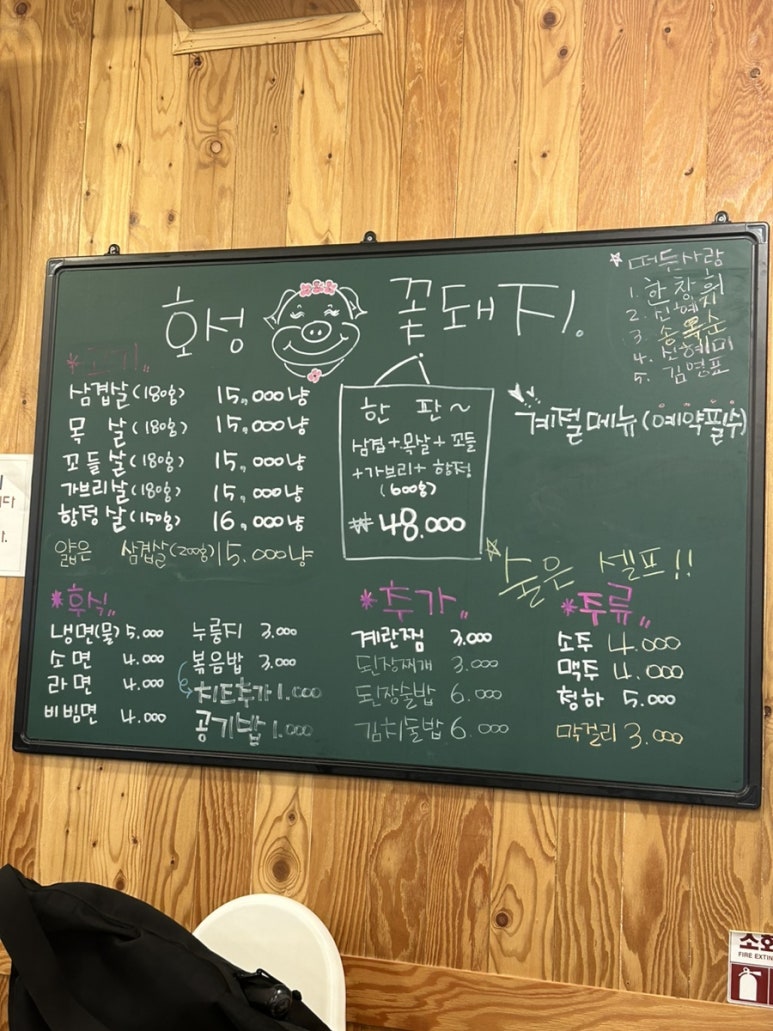 화성 꽃돼지!
*고기"
삼겹살(180g) 15,000냥
목 살(180g) 15,000냥
꼬들살(180g) 15,000냥
가브리살(180g) 15,000냥
항정살(150g) 16,000냥
얇은 삼겹살(200g) 15.000냥
한 판~
삼겹+목살+꼬들
+가브리+항정
(600g)
₩48.000
1. 한창희
2. 신혜지
4. 신혜미
5. 김명표
계절메뉴(예약필수)
술은 셀프!!
*후식"
냉면(물) 5.000
소면 4.000
라면 4.000
비빔면 4.000
누룽지 3.000
볶음밥 3.000
치즈추가 1.000
공기밥 1.000
*추가"
계란찜 3.000
된장찌개 3.000
된장술밥 6.000
김치술밥 6.000
*주류"
소주 4.000
맥주 4.000
청하 5.000
막걸리 3.000
FIRE EXTIN